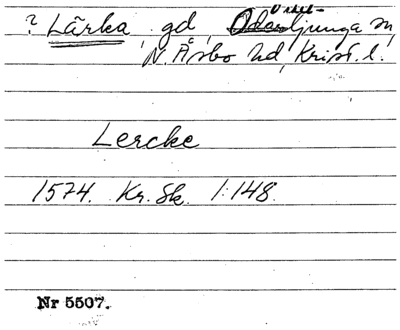 ? Lärka, gd, Örkelljunga sn,
N. Åsbo hd, Krist. l.
Lercke
1574. Kr. Sk. 1:148.
Nr 5507.